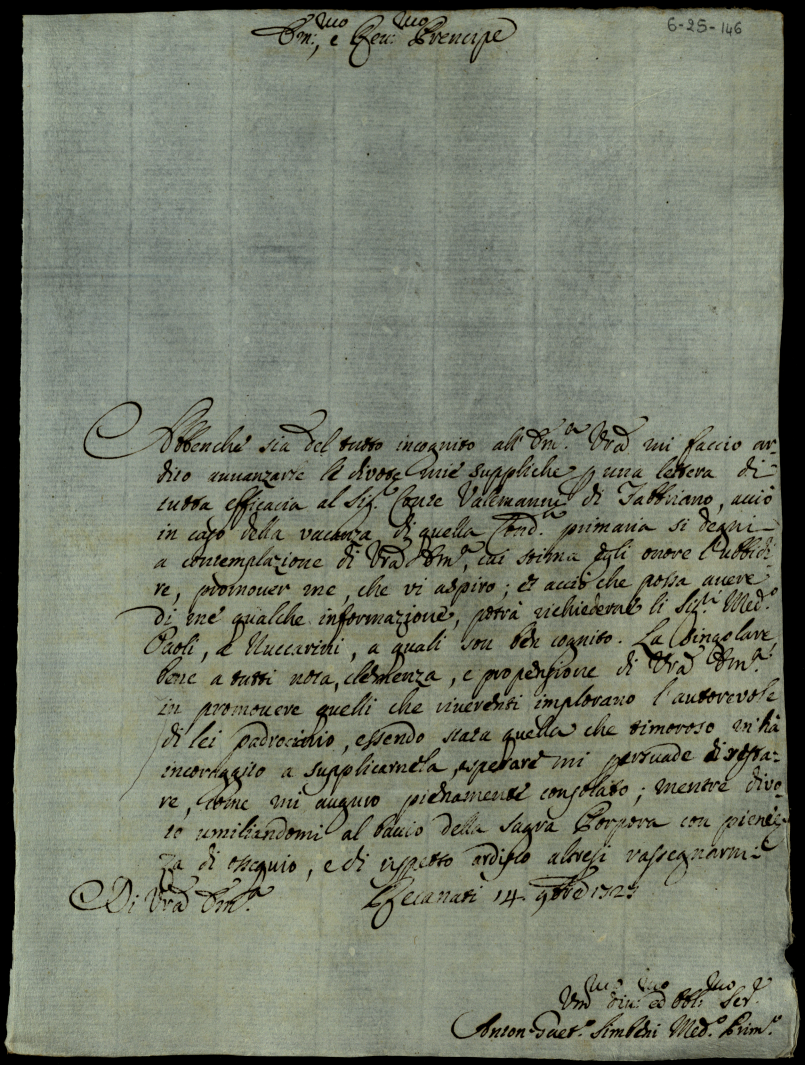 6-25-146
Em:mo, e Rev:mo Prencipe
Abbenche sia del tutto incognito all' Em.a Vra mi faccio ar-
dito avvanzarle le divote mie suppliche p una lettera di
tutta efficacia al Sig.r Conte Vallemanni di Fabbriano, acciò
in caso della vacanza di quella Cond.a primaria si degni
a contemplazione di Vra Em.a, cui stima egli onore l'ubbidi-
re, promover me, che vi aspiro; et acciò che possa avere
di me qualche informazione, potrà richiederne li Sig.ri Med.o
Paoli, e Nuccarini, a quali son ben cognito. La singolare,
bene a tutti nota, clemenza, e propensione di Vra Em.a
in promovere quelli che riverenti implorano l'autorevole
di lei padrocinio, essendo stata quella che timoroso m'hà
incoraggito a supplicarnela, sperare mi persuade di resta-
re, come mi auguro pienamente consolato; mentre divo-
to umiliandomi al bacio della Sagra Porpora con pienez-
za di ossequio, e di rispetto ardisco altresi rassegnarmi
Di Vra Em.a Recanati 14 9bre 1723
Vm:mo div:mo ed Obl:mo Ser.e
Anton Gaet.o Simbeni Med.o Prim.o